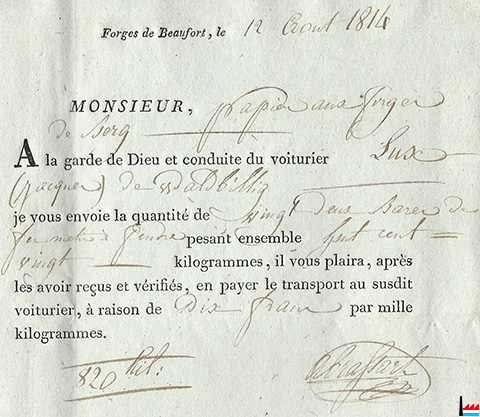 Forges de Beaufort, le 12 Aout 1814
MONSIEUR, papier aux forges
de Berg
A la garde de Dieu et conduite du voiturier Lux
(jacques) de Waldbillig
je vous envoie la quantité de vingt deux Barres de
fer à fendre pesant ensemble huit cent
vingt kilogrammes, il vous plaira, après
les avoir reçus et vérifiés, en payer le transport au susdit
voiturier, à raison de Dix franc par mille
kilogrammes.
820 kil: